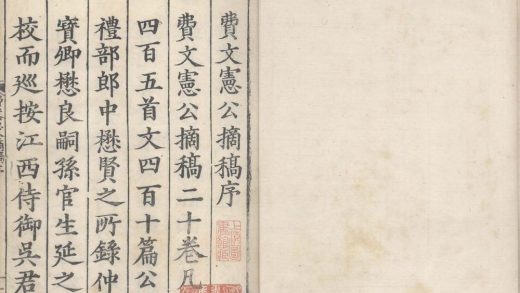 費文憲公摘稿序
費文憲公摘稿二十卷凡
四百五首文四百十篇公
禮部郎中懋賢之所錄仲
寳卿懋良嗣孫官生延之
校而廵按江西侍御吳君